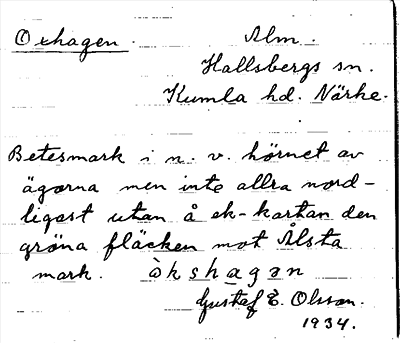 Oxhagen.
Alm.
Hallsbergs sn.
Kumla hd. Närke.
Betesmark i n. v. hörnet av
ägorna men inte allra nord-
ligast utan å ek-kartan den
gröna fläcken mot Ålsta
mark. òkshagan
Gustaf E. Olsson.
1934.